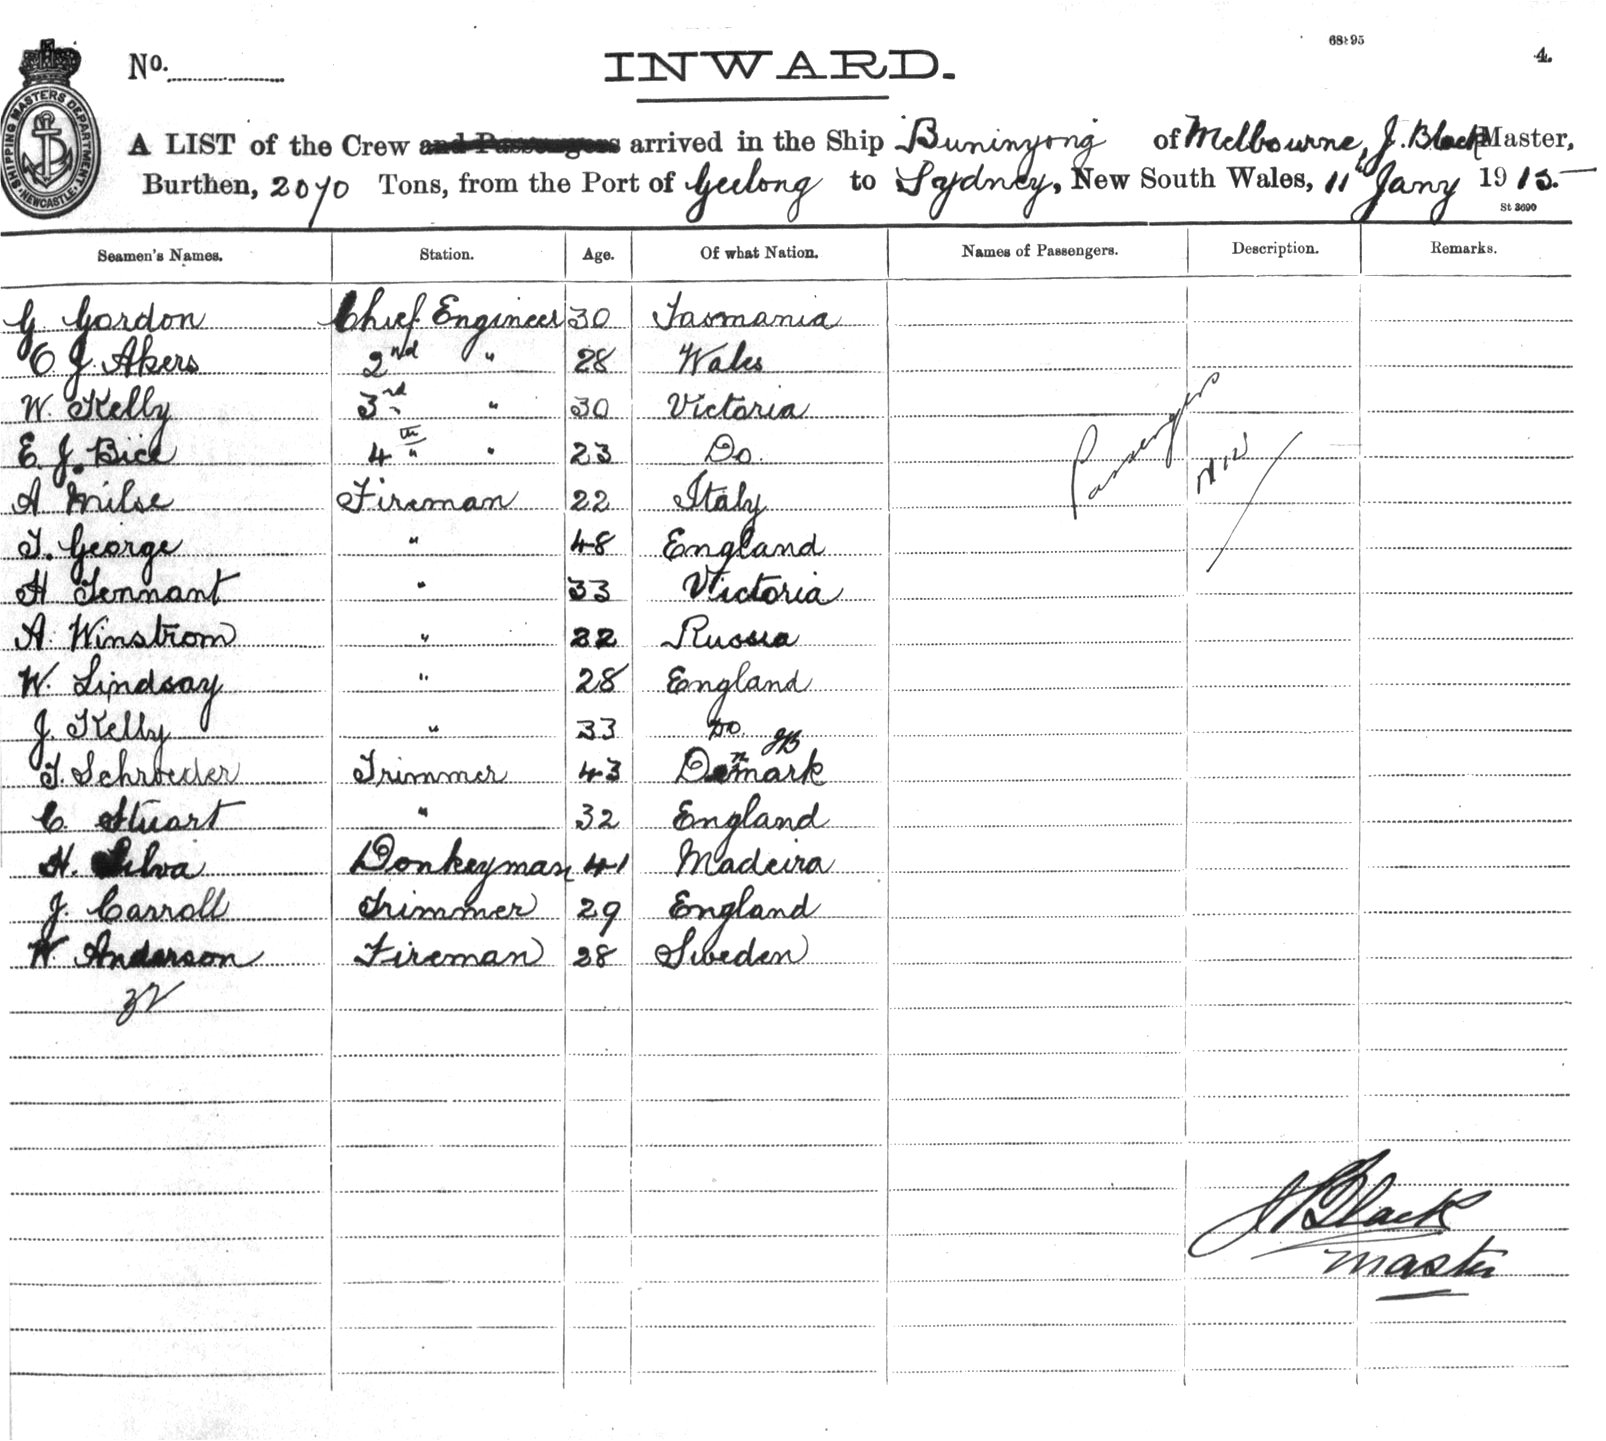 68195
4.
No.
INWARD.
SHIPPING MASTERS DEPARTMENT. NEWCASTLE.
A LIST of the Crew and Passengers arrived in the Ship Buninyong of Melbourne, J. Black Master,
Burthen, 2070 Tons, from the Port of Geelong to Sydney, New South Wales, 11 Jany 1915.
St 3690
Seamen's Names. Station. Age. Of what Nation. Names of Passengers. Description. Remarks.
G Gordon Chief Engineer 30 Tasmania
C J. Akers 2nd " 28 Wales
W. Kelly 3rd " 30 Victoria
E. J. Bice 4th " 23 Do.
A Milse Fireman 22 Italy
T. George " 48 England
H Tennant " 33 Victoria
A. Winstrom " 22 Russia
W. Lindsay " 28 England
J. Kelly " 33 Do.
JB
T. Schroeder Trimmer 43 Denmark
C. Stuart " 32 England
H. Silva Donkeyman 41 Madeira
J. Carroll Trimmer 29 England
W. Anderson Fireman 28 Sweden
Passengers Nil
J Black
Master